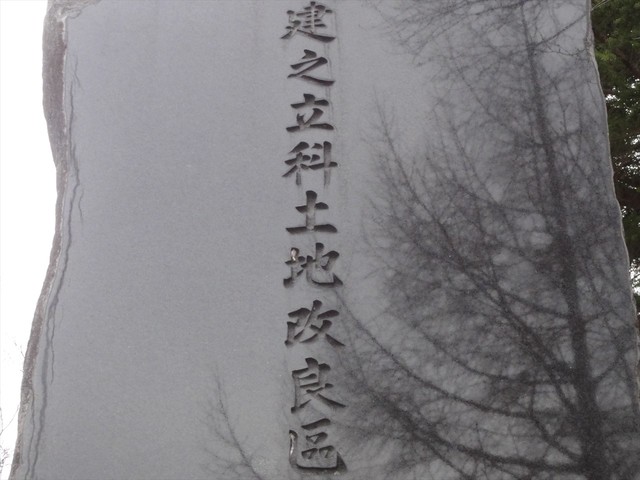 建之立科土地改良區